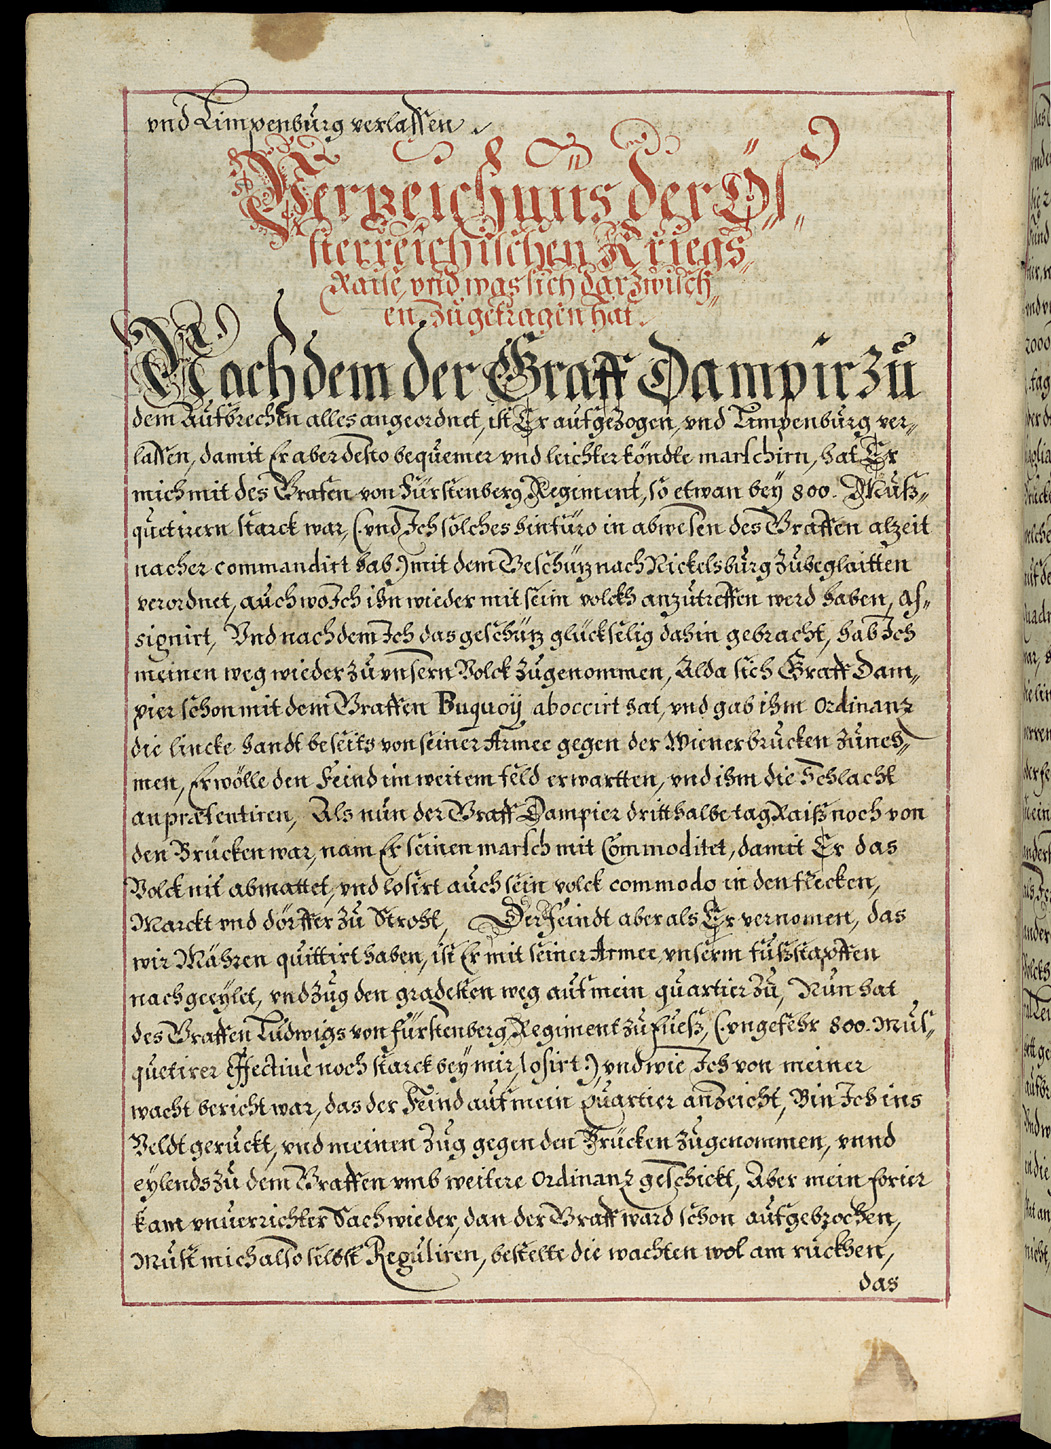 vnd Timpenburg verlassen.
Verzeichnüs der Ös=
sterreichischen Kriegs=
Raise, vnd was sich darzwisch=
en zugetragen hat.
Nachdem der Graff Dampir zu
dem Aufbrechen alles angeordnet, ist Er aufgezogen, vnd Timpenburg ver=
lassen, damit Er aber desto bequemer vnd leichter köndte marschirn, hat Er
mich mit des Grafen von Fürstenberg Regiment, so etwan bey 800. Muß=
quetirern starck war, (: vnd Ich solches hinfüro in abwesen des Graffen alzeit
nacher commandirt hab:) mit dem Geschütz nach Nickelsburg zubeglaitten
verordnet, auch wo Ich ihn wieder mit seim volckh anzutreffen werd haben, as=
signirt, Vnd nachdem Ich das geschütz glückselig dahin gebracht, hab Ich
meinen weg wieder zu vnsern Volck zugenommen, Alda sich Graff Dam=
pier schon mit dem Graffen Buquoy aboccirt hat, vnd gab ihm Ordinanz
die lincke handt beseits von seiner Armee gegen der Wienerbrucken zuneh=
men, Er wölle den Feind im weitem feld erwartten, vnd ihm die Schlacht
anpræsentiren, Als nun der Graff Dampier dritthalbe tag Raiß noch von
den Brücken war, nam Er seinen marsch mit Commoditet, damit Er das
Volck nit abmattet, vnd losirt auch sein volck commodo in den flecken,
Marckt vnd dörffer zu Strobl, Der Feindt aber als Er vernomen, das
wir Mähren quittirt haben, ist Er mit seiner Armee, vnserm fußstapffen
nachgeeylet, vnd zug den gradesten weg auf mein quartier zu, Nun hat
des Graffen Ludwigs von Fürstenberg, Regiment zu fuesß, (: vngefehr 800. Mus=
quetirer Effectiue noch starck bey mir losirt:) vnd wie Ich von meiner
wacht bericht war, das der Feind auf mein quartier anzeicht, Bin Ich ins
Veldt geruckt, vnd meinen Zug gegen den Brücken zugenommen, vnnd
eylends zu dem Graffen vmb weitere Ordinanz geschickt, Aber mein forier
kam vnuerrichter Sach wieder, dan der Graff ward schon aufgebrochen,
Must mich also selbst Reguliren, bestelte die wachten wol am ruckhen,
das